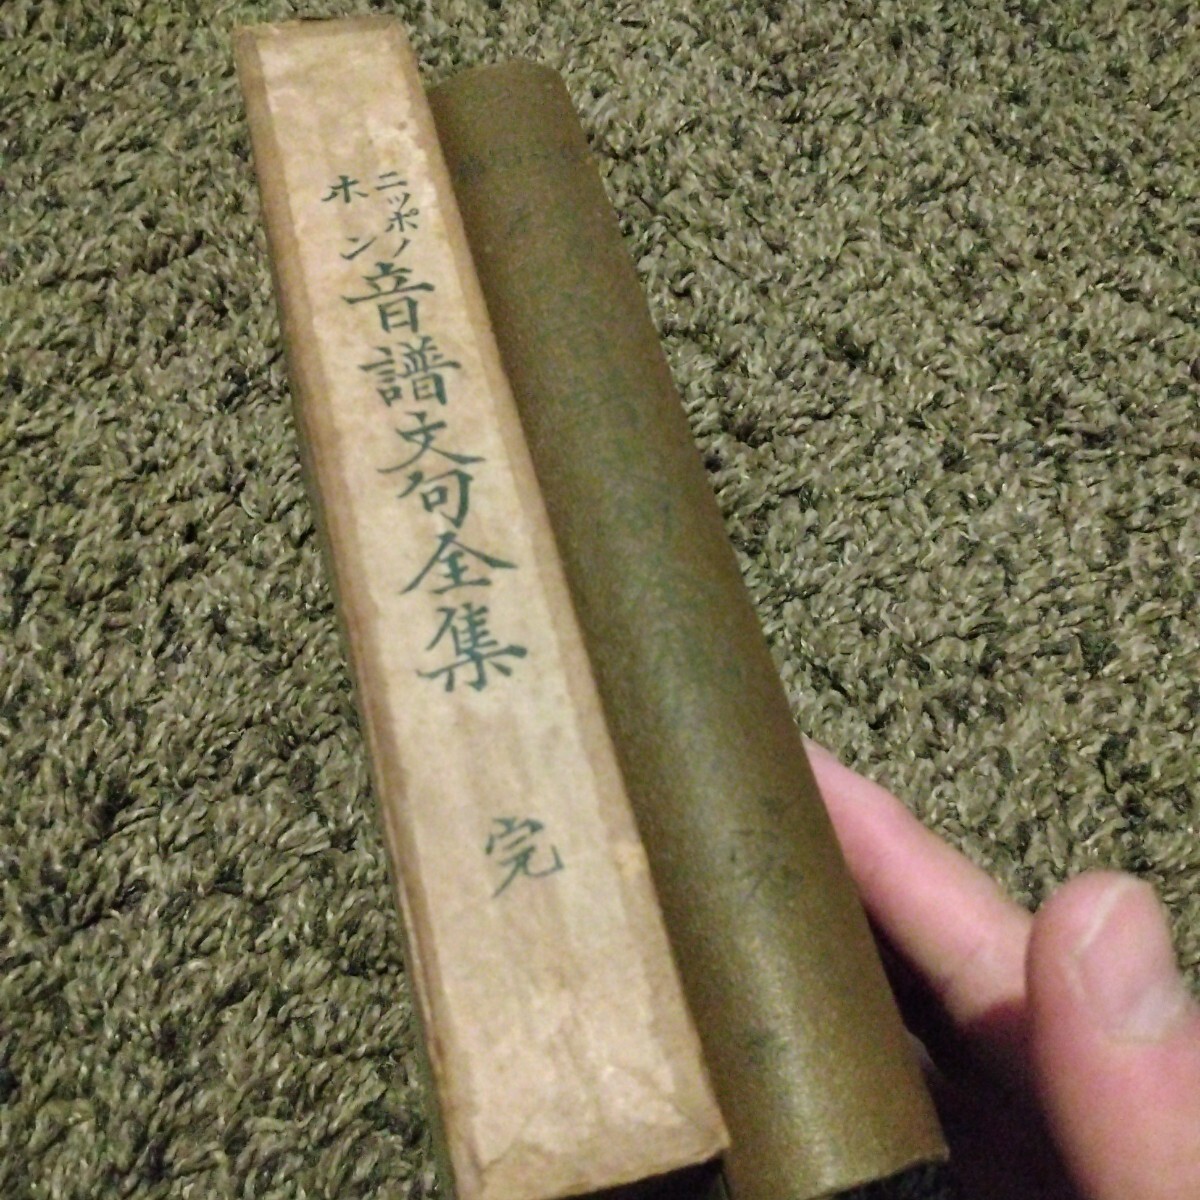 ニッポノホン音譜文句全集 完